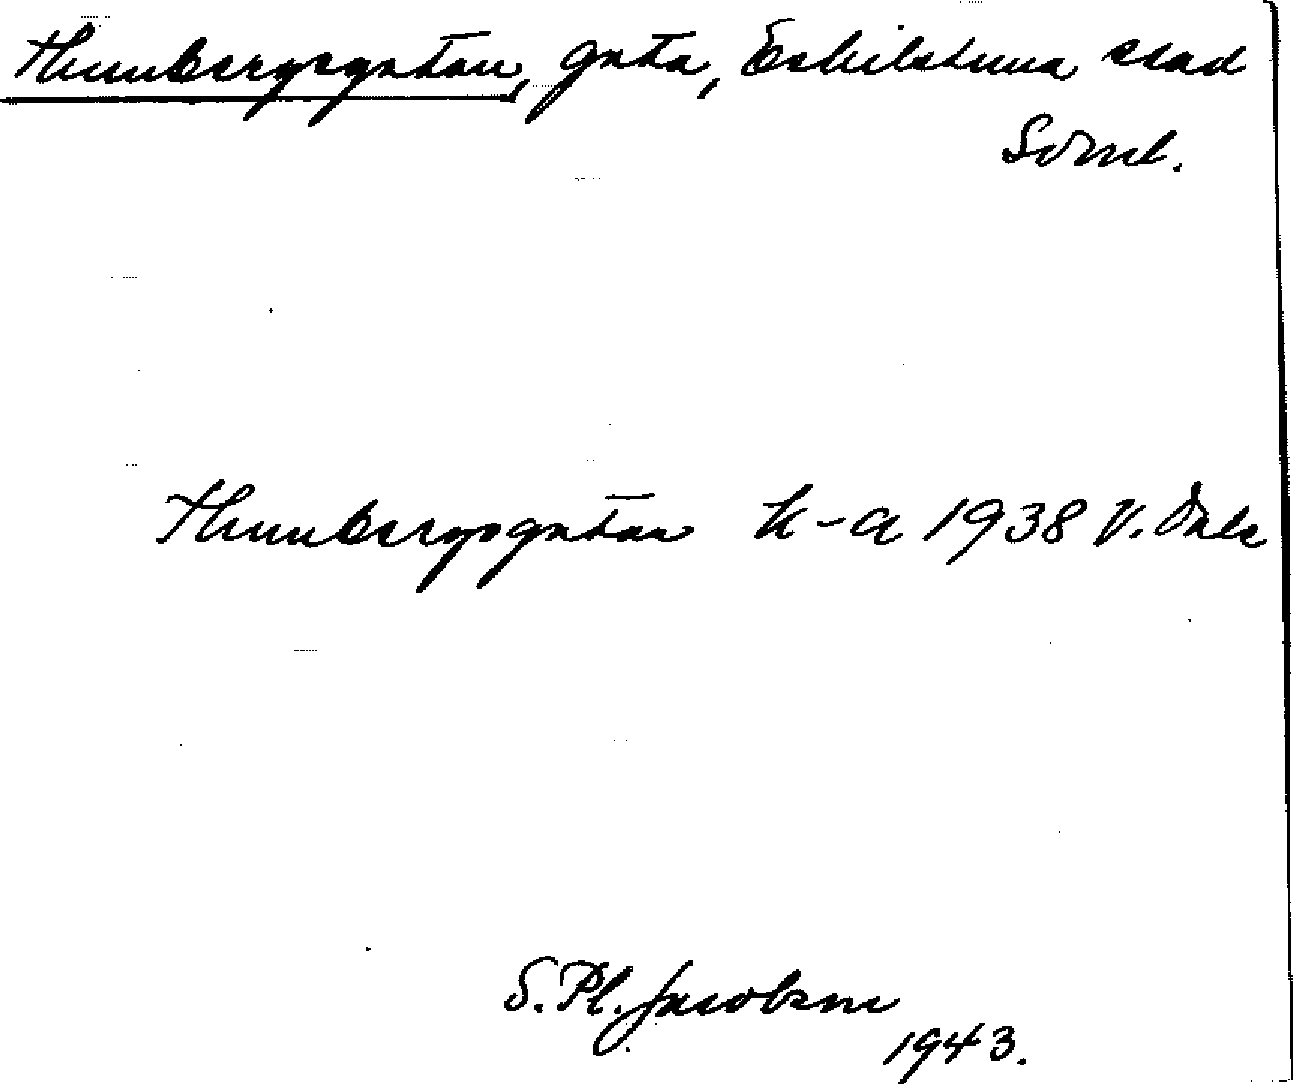 Thunbergsgatan, gata, Eskilstuna stad
Sörml.
Thunbergsgatan k-a 1938 V.
S. Pl. Jacobson
1943.